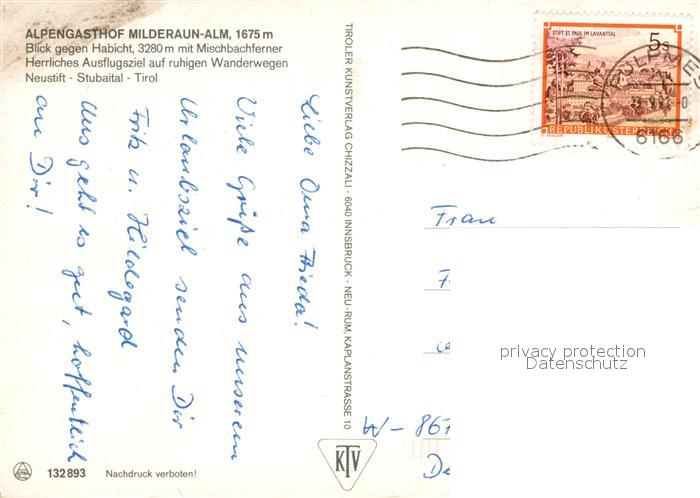 ALPENGASTHOF MILDERAUN-ALM, 1675 m
Blick gegen Habicht, 3280 m mit Mischbachferner
Herrliches Ausflugsziel auf ruhigen Wanderwegen
Neustift - Stubaital - Tirol
Liebe Oma Frieda!
Viele Grüße aus unserem
Urlaubsziel senden Dir
Fritz u. Hildegard
Uns geht es gut, hoffentlich
auch Dir!
TIROLER KUNSTVERLAG CHIZZALI · 6040 INNSBRUCK - NEU-RUM, KAPLANSTRASSE 10
STIFT ST. PAUL IM LAVANTTAL
5 S
REPUBLIK ÖSTERREICH
FULPMES
6166
Frau
F
W - 867
De
privacy protection
Datenschutz
KTV
132893 Nachdruck verboten!